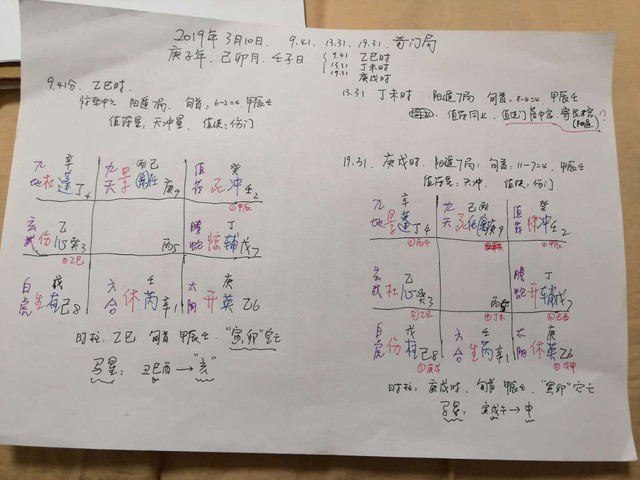 2019年 3月10日. 9.41. 13.31. 19.31. 奇门局
庚子年. 己卯月. 壬子日
9.41 乙巳时
13.31 丁未时
19.31 庚戌时
9.41分. 乙巳时
惊蛰中元 阳遁7局. 旬首: 6-2=4 甲辰壬
值符星: 天冲星. 值使: 伤门
九地 杜 辛 蓬 丁4
九天 景 丙己 任 庚9
值符 死 癸 冲 壬2
①甲辰
玄武 伤 乙 心 癸3
②乙巳
丙5
螣蛇 惊 丁 辅 戊7
白虎 生 戊 柱 己8
六合 休 壬 芮 辛1
太阴 开 庚 英 乙6
时柱: 乙巳 旬首 甲辰壬. "寅卯"空亡
马星: 丑巳酉 → "亥"
13.31 丁未时 阳遁7局 旬首: 8-4=4 甲辰壬
值符同上. 值使门落中宫. 寄
?
19.31. 庚戌时. 阳遁7局: 旬首: 11-7=4. 甲辰壬
值符星: 天冲. 值使: 伤门
九地 景 辛 蓬 丁4
九天 死 己丙 任 庚9
值符 惊 癸 冲 壬2
①甲辰
玄武 杜 乙 心 癸3
②乙巳
丙5
④丁未
螣蛇 开 丁 辅 戊7
白虎 伤 戊 柱 己8
六合 生 壬 芮 辛1
太阴 休 庚 英 乙6
⑦庚戌
时柱: 庚戌时. 旬首 甲辰壬. "寅卯"空亡
马星: 寅戌午 → 申